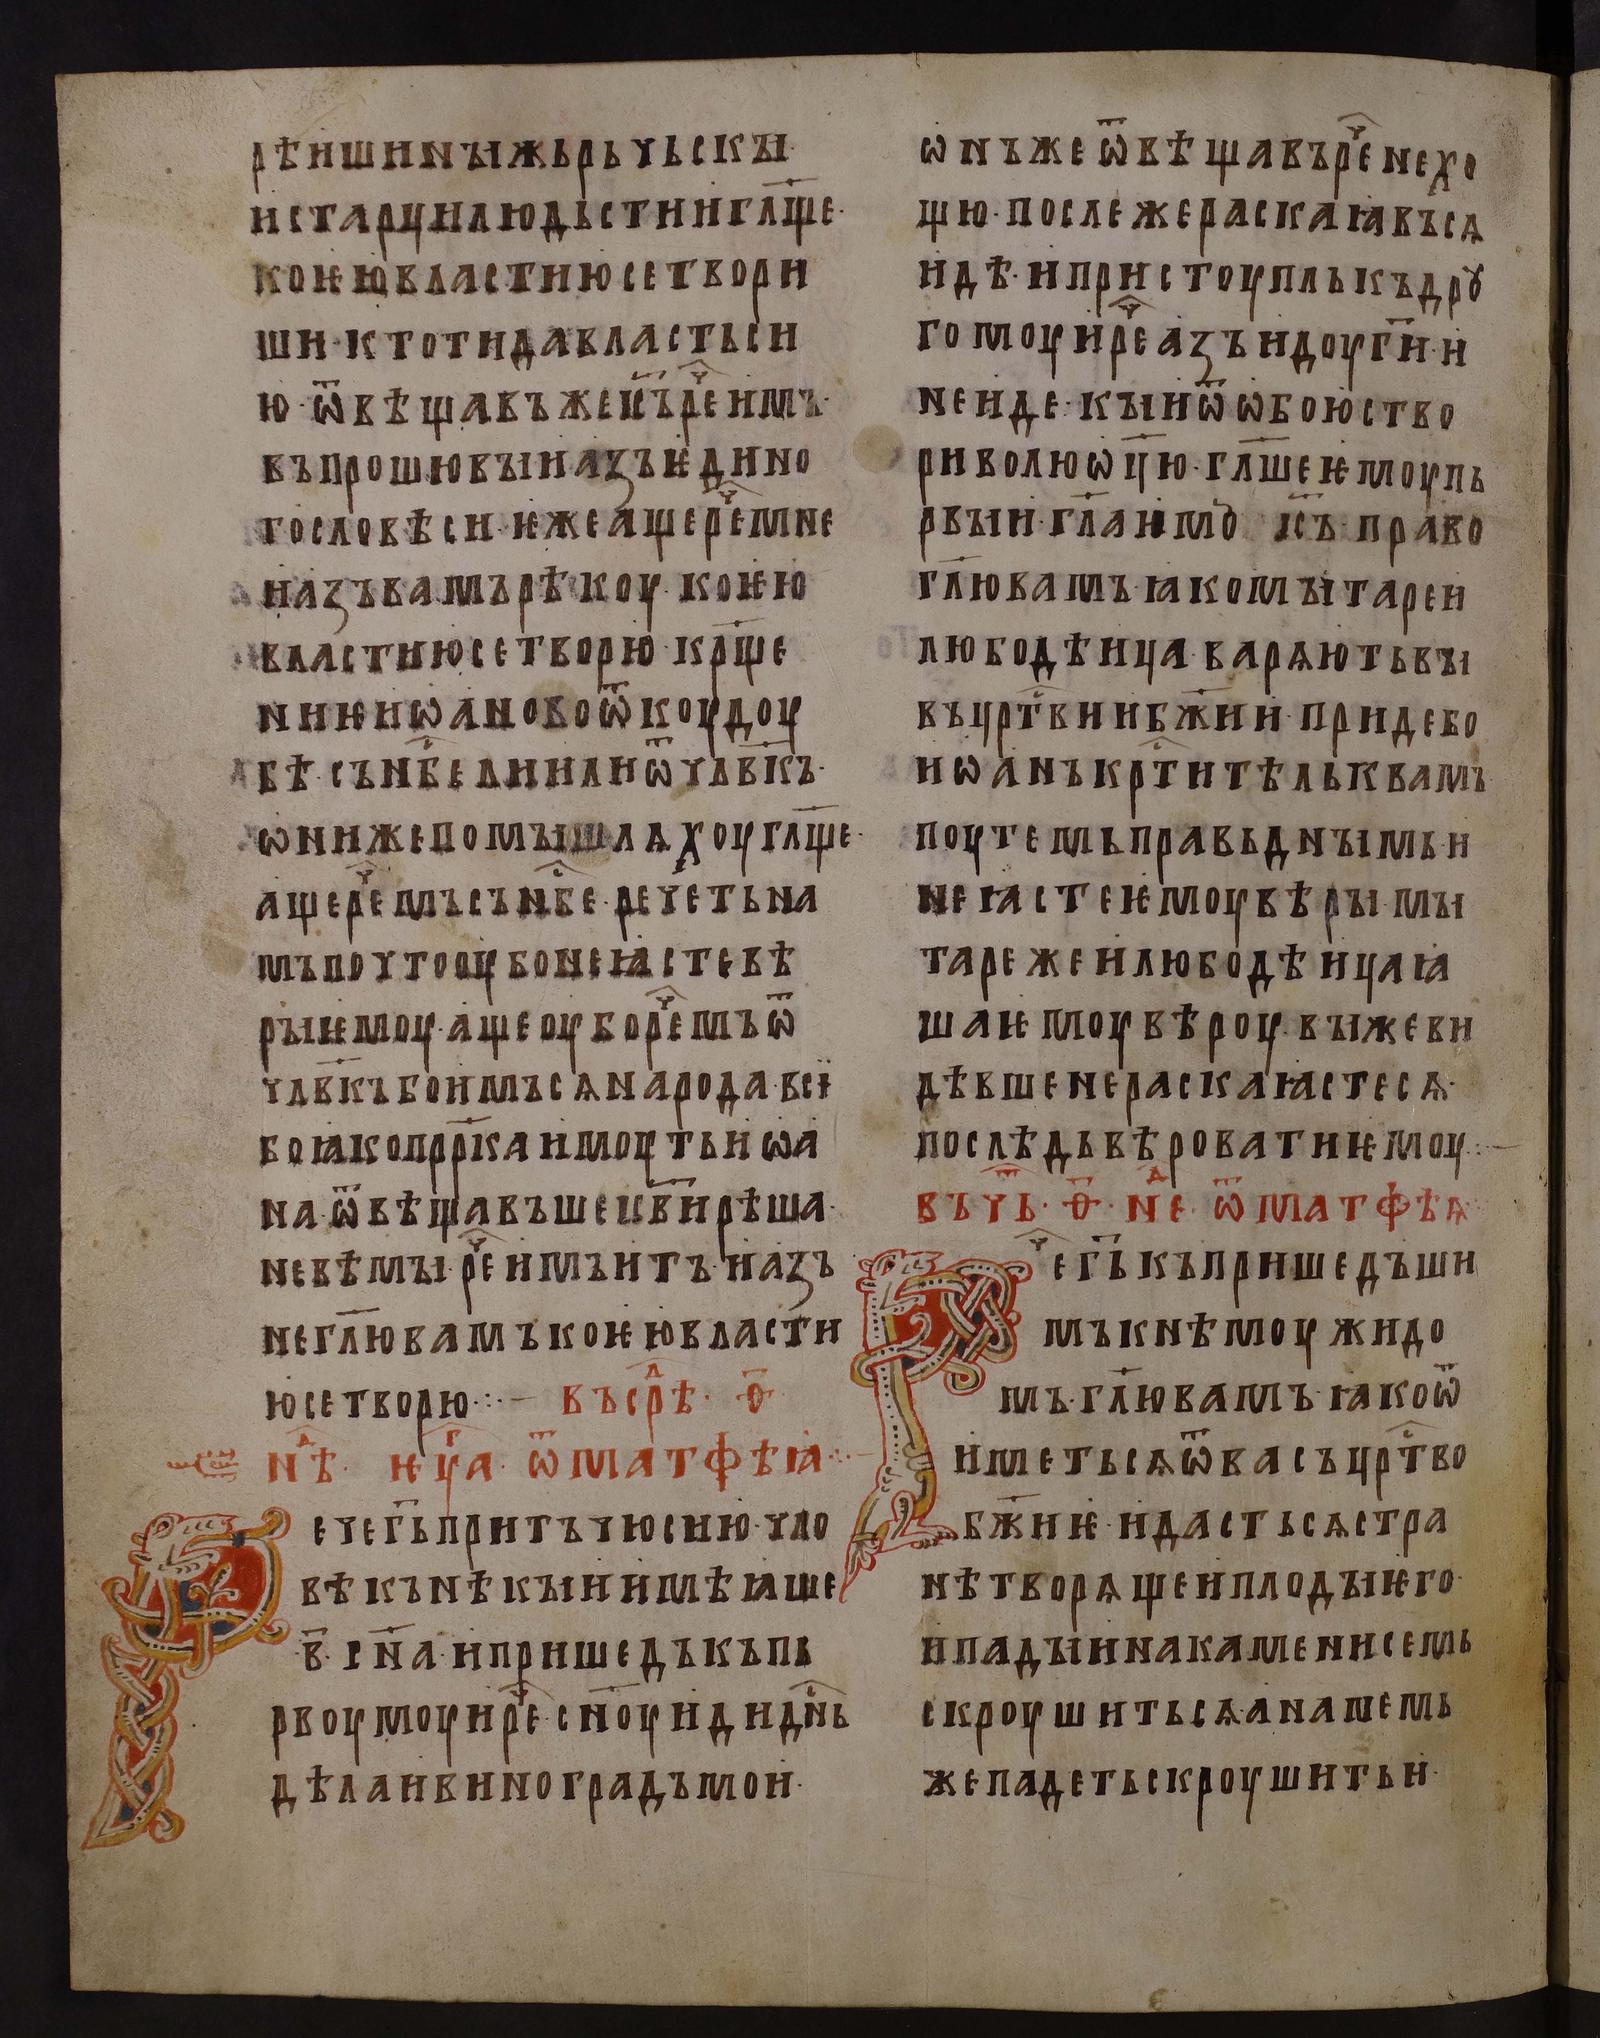 рѣишинъижьрьчьскъі·
истарцилюдьстииигл҃ще·
коѥювластиюсетвори
ши·ктотидавластьси
ю·ѿвѣщавъжеіс҃ъреч҇имъ·
въпрошювъииазъѥдино
гословѣси·ѥжеащереч҇емне
иазъвамърѣкоу·коѥю
властиюсетворю·крщ҃е
ниѥиѡановоѿкоудоу
бѣ·сън҃бс҇елиилиѿчлв҃къ·
ѡнижепомъішлѧхоугл҃ще·
ащереч҇емъсън҃бс҇е·речетьна
мъпочтооубонеꙗстевѣ
ръіѥмоу·ащеоубореч҇емъѿ
члв҃къбоимъсѧнарода·вси
боꙗкопррк҃аимоутьиѡа
на·ѿвѣщавъшеісв҃ирѣша·
невѣмъі·реч҇имъитъ·иазъ
негл҃ювамъкоѥювласти
юсетворю·:— въсрд҇ѣ·ѳ҃·
нд҇ѣ· ѥг҇ца·ѿматфѣꙗ·:—
ечег҃ьпритъчюсию·чло
вѣкънѣкъіиимѣꙗше
·в҃·сн҃а·ипришедъкъпь
рвоумоуиреч҇·сн҃оуидидн҇ь
дѣлаивиноградъмои·
ѡнъжеѿвѣщавъреч҇нехо
щю·послежераскаꙗвъсѧ
идѣ·ипристоуплькъдрꙋ
гомоуиреч҇азъидоуг҃и·и
неиде·къіиѿѡбоюство
риволюѡц҃ю·гл҃шеѥмоупь
рвъіи·гл҃аимꙋ іс҃ъ·право
гл҃ювамъꙗкомъітареи
любодѣица·варѧютьвъі
въцрт҇виибж҃ии·придебо
иѡанъкрт҇ительквамъ
поутемьправьднъімь·и
неꙗстеѥмоувѣръі·мъі
тарежеилюбодѣицаꙗ
шаѥмоувѣроу·въіжеви
дѣвшенераскаꙗстесѧ·
послѣдьвѣроватиѥмоу·:—
въчт҇ь·ѳ҃·нд҇е·ѿматфѣѧ
ч҇ег҃ькъпришедъши
мъкнѣмоужидо
мъ·гл҃ювамъ·ꙗкоѿ
иметьсѧѿвасъцрт҇во
бж҃иѥ·идастьсѧстра
нѣтворѧщеиплодъіѥго·
ипадъіинакаменисемь
скроушитьсѧ·ананемь
жепадетьскроушитьи·